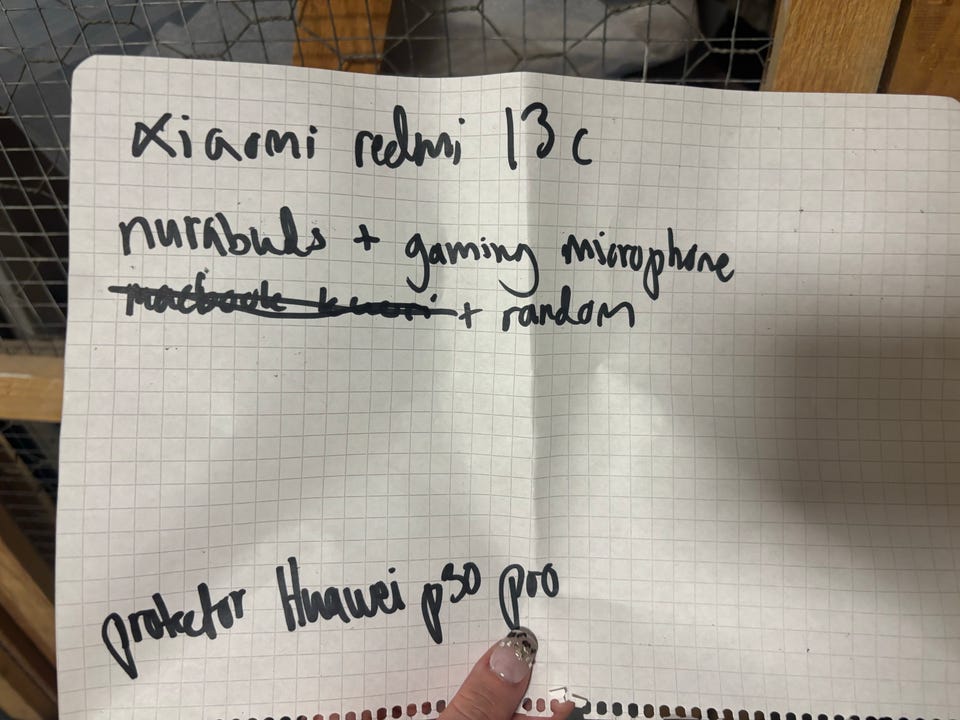 Xiaomi redmi 13c
nurabuds + gaming microphone
macbook kuori + random
protektor Huawei p30 pro